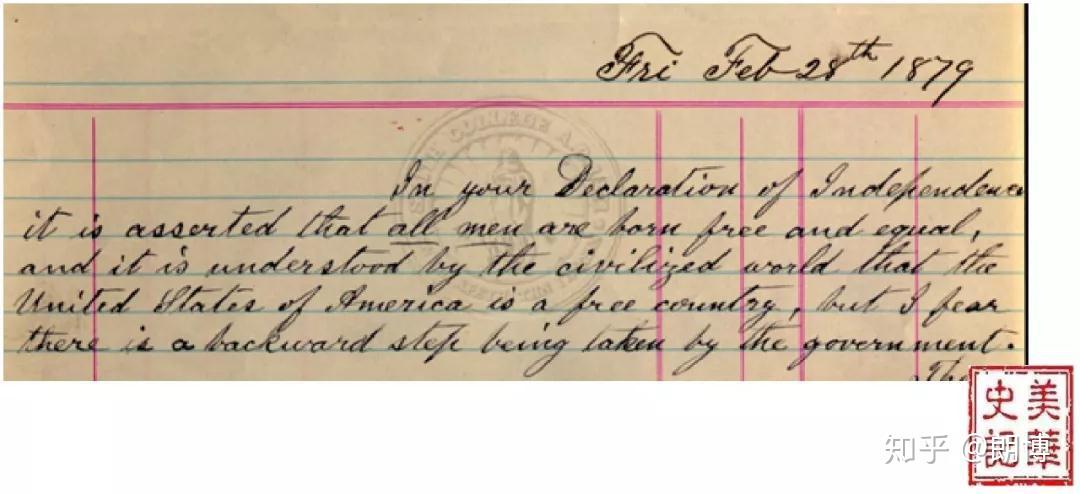 Fri Feb 28th 1879
In your Declaration of Independence
it is asserted that all men are born free and equal,
and it is understood by the civilized world that the
United States of America is a free country, but I fear
there is a backward step being taken by the government.
美華
史記
知乎 @朗博